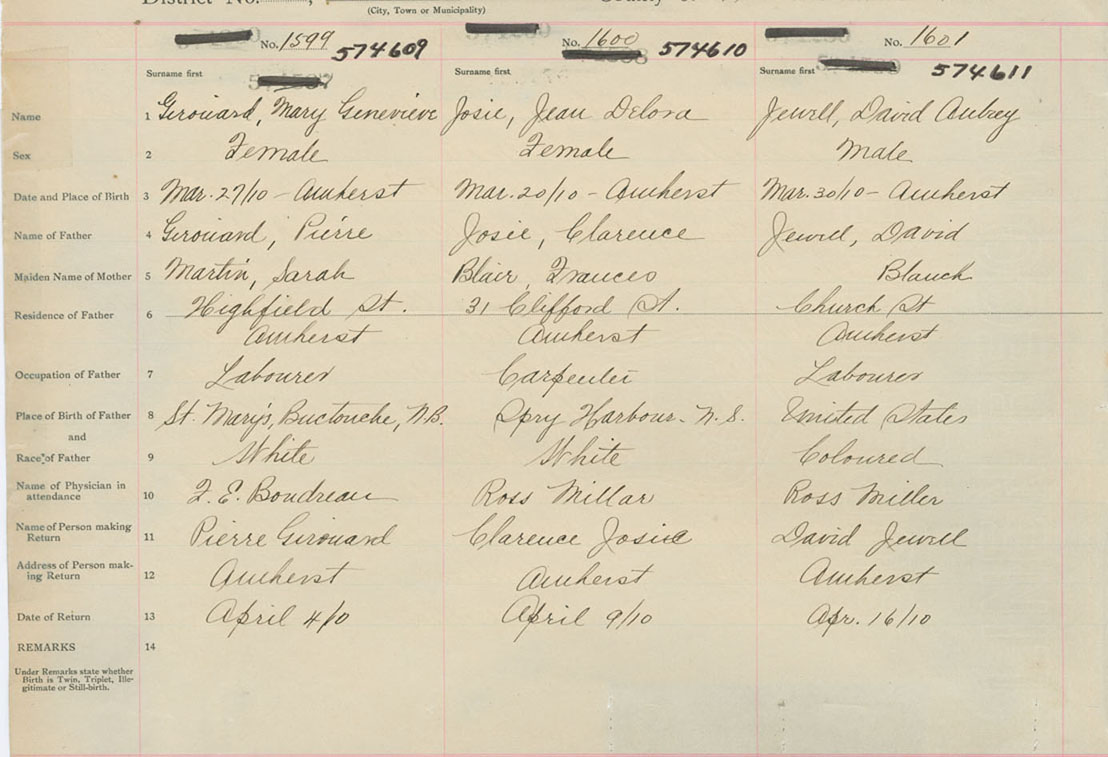 District No.
(City, Town or Municipality)
No. 1599 574609 No. 1600 574610 No. 1601 574611
Surname first Surname first Surname first
Name 1 Girouard, Mary Genevieve Josie, Jean Delora Jewell, David Aubrey
Sex 2 Female Female Male
Date and Place of Birth 3 Mar. 27/10 - Amherst Mar. 20/10 - Amherst Mar. 30/10 - Amherst
Name of Father 4 Girouard, Pierre Josie, Clarence Jewell, David
Maiden Name of Mother 5 Martin, Sarah Blair, Frances Blanch
Residence of Father 6 Highfield St. 31 Clifford St. Church St
Amherst Amherst Amherst
Occupation of Father 7 Labourer Carpenter Labourer
Place of Birth of Father 8 St. Mary's, Buctouche, N.B. Spry Harbour - N.S. United States
and
Race of Father 9 White White Coloured
Name of Physician in
attendance 10 F. E. Boudreau Ross Millar Ross Miller
Name of Person making
Return 11 Pierre Girouard Clarence Josie David Jewell
Address of Person mak-
ing Return 12 Amherst Amherst Amherst
Date of Return 13 April 4/10 April 9/10 Apr. 16/10
REMARKS 14
Under Remarks state whether
Birth is Twin, Triplet, Ille-
gitimate or Still-birth.